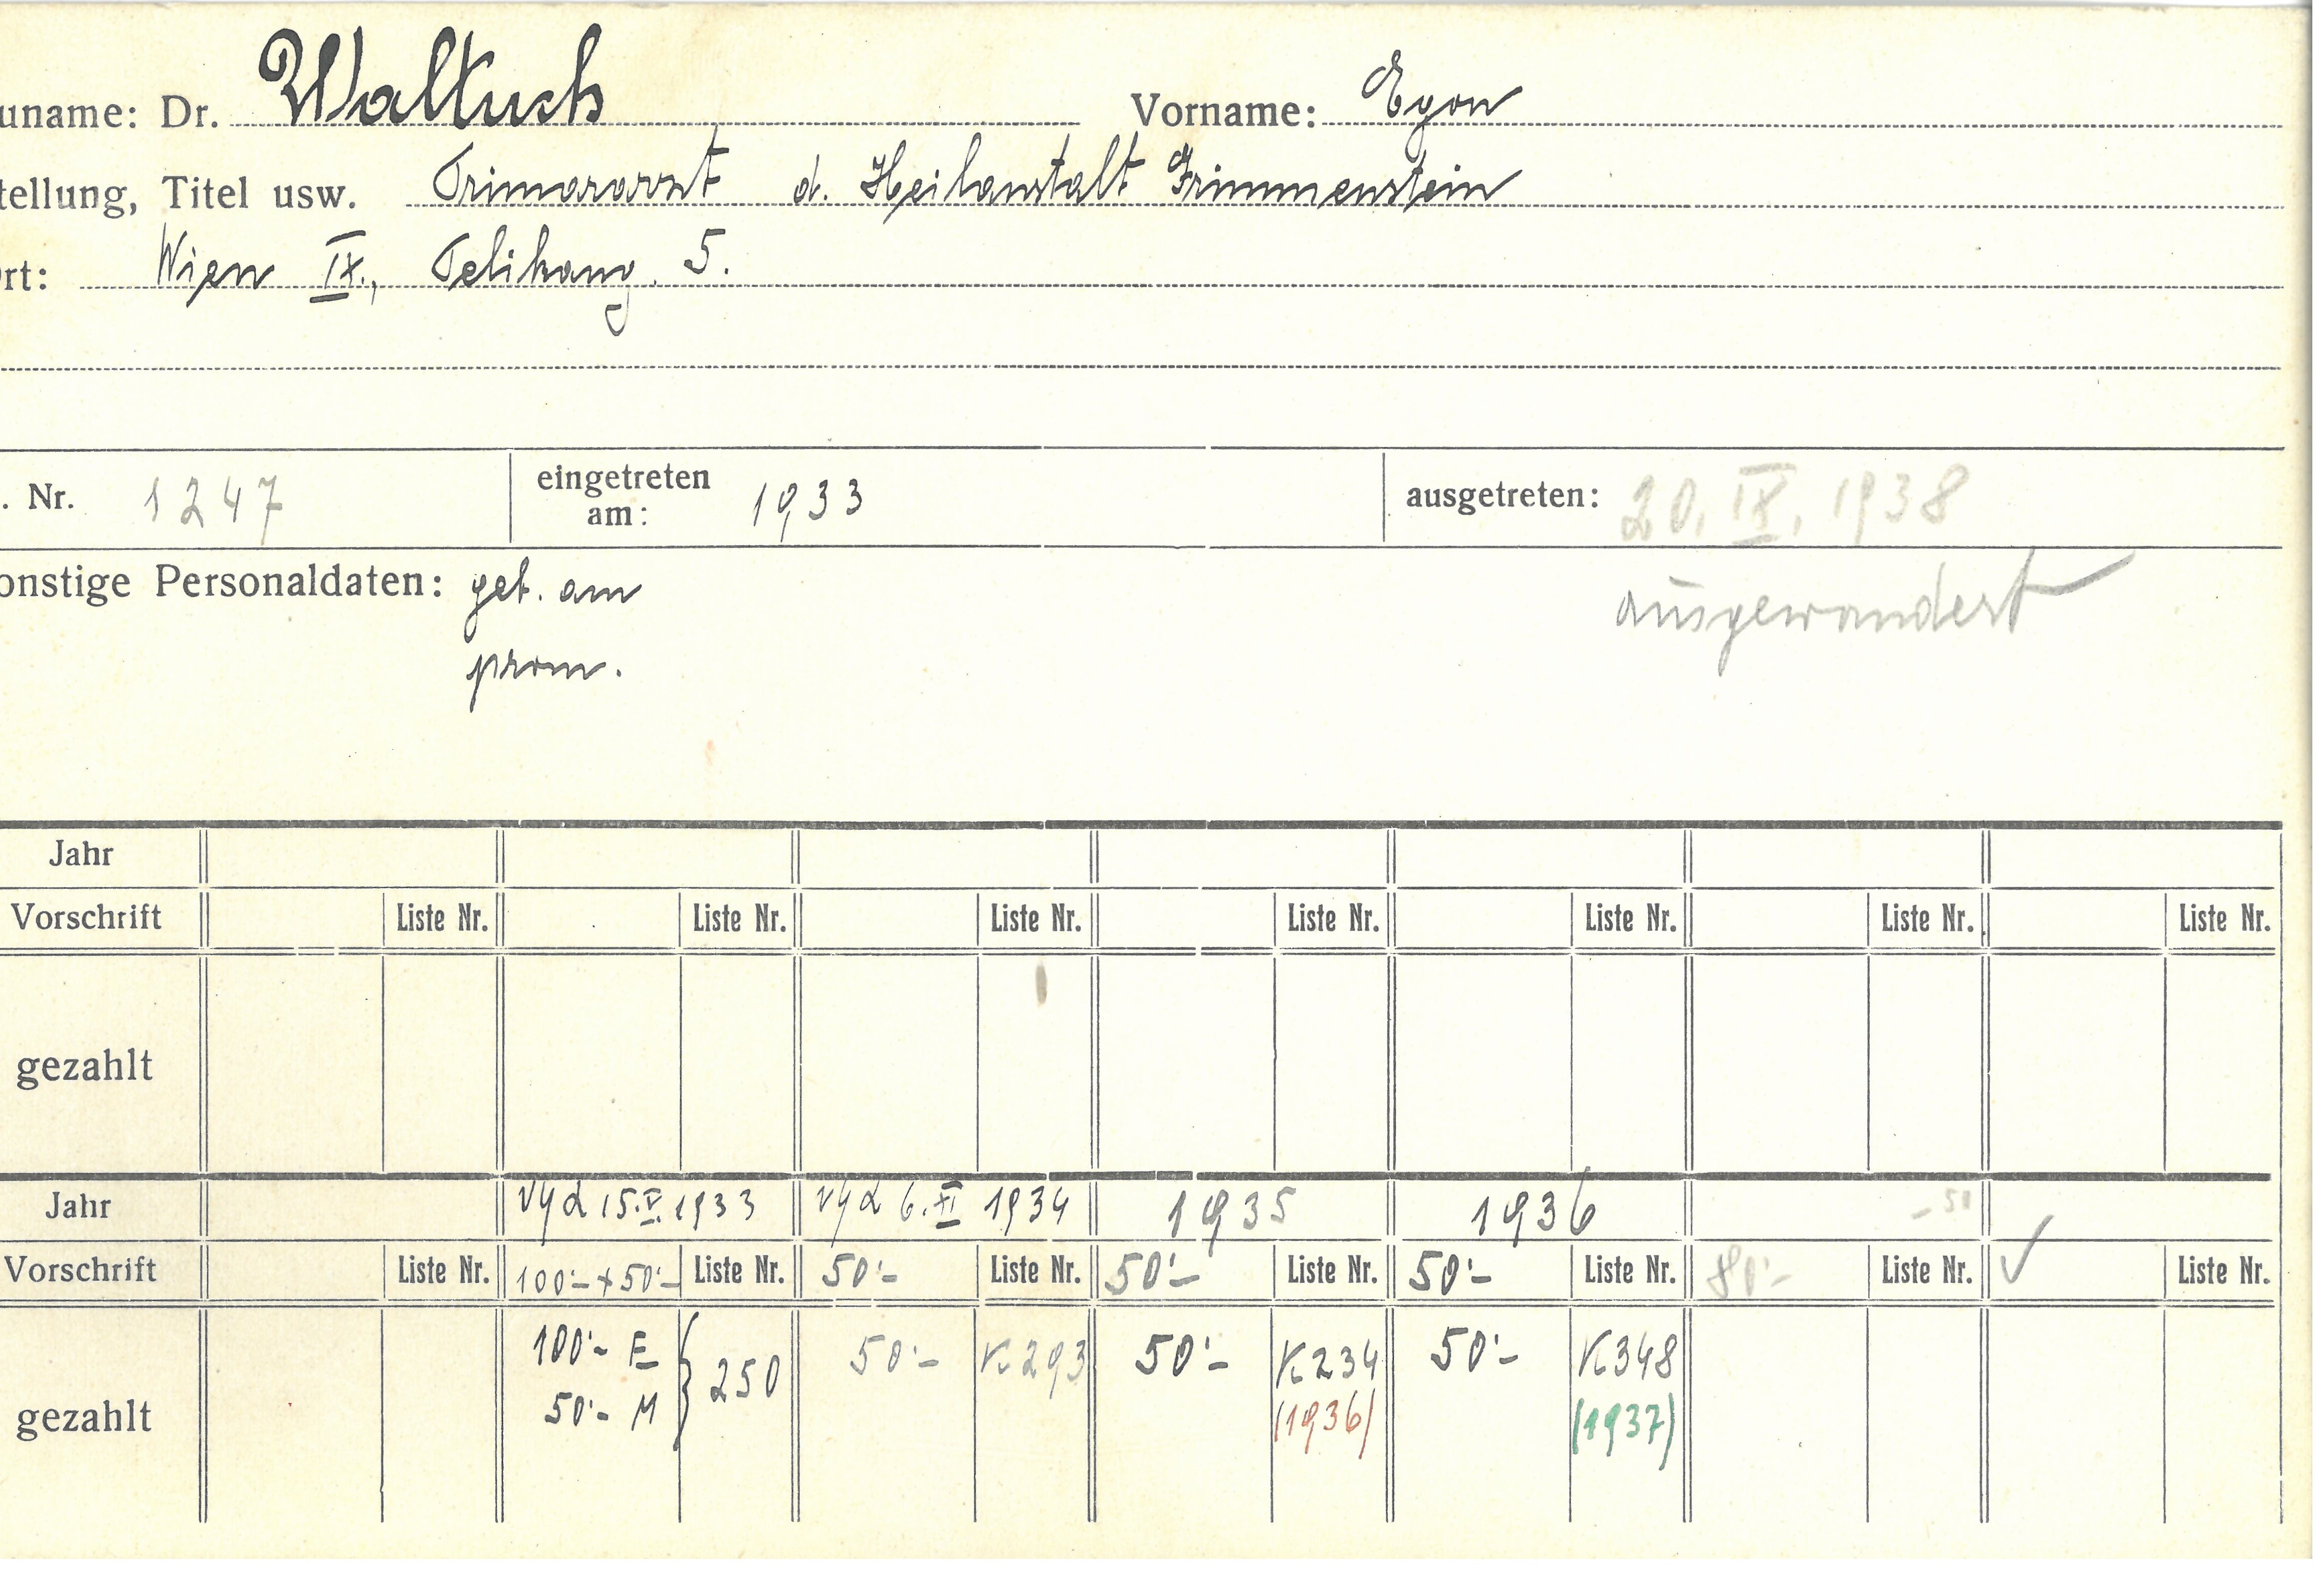 uname: Dr. Waltuch Vorname: Egon
tellung, Titel usw. Primararzt d. Heilanstalt Grimmenstein
rt: Wien IX., Pelikang. 5.
. Nr. 1247 eingetreten am: 1933 ausgetreten: 20. IX. 1938
ausgewandert
onstige Personaldaten: geb. am
prom.
Jahr
Vorschrift Liste Nr. Liste Nr. Liste Nr. Liste Nr. Liste Nr. Liste Nr. Liste Nr.
gezahlt
Jahr 15.V. 1933 6.XI 1934 1935 1936 -50
Vorschrift Liste Nr. 100'- + 50'- Liste Nr. 50'- Liste Nr. 50'- Liste Nr. 50'- Liste Nr. 80'- Liste Nr. ✓ Liste Nr.
gezahlt 100'- E 50'- M } 250 50'- K293 50'- K234 (1936) 50'- K348 (1937)